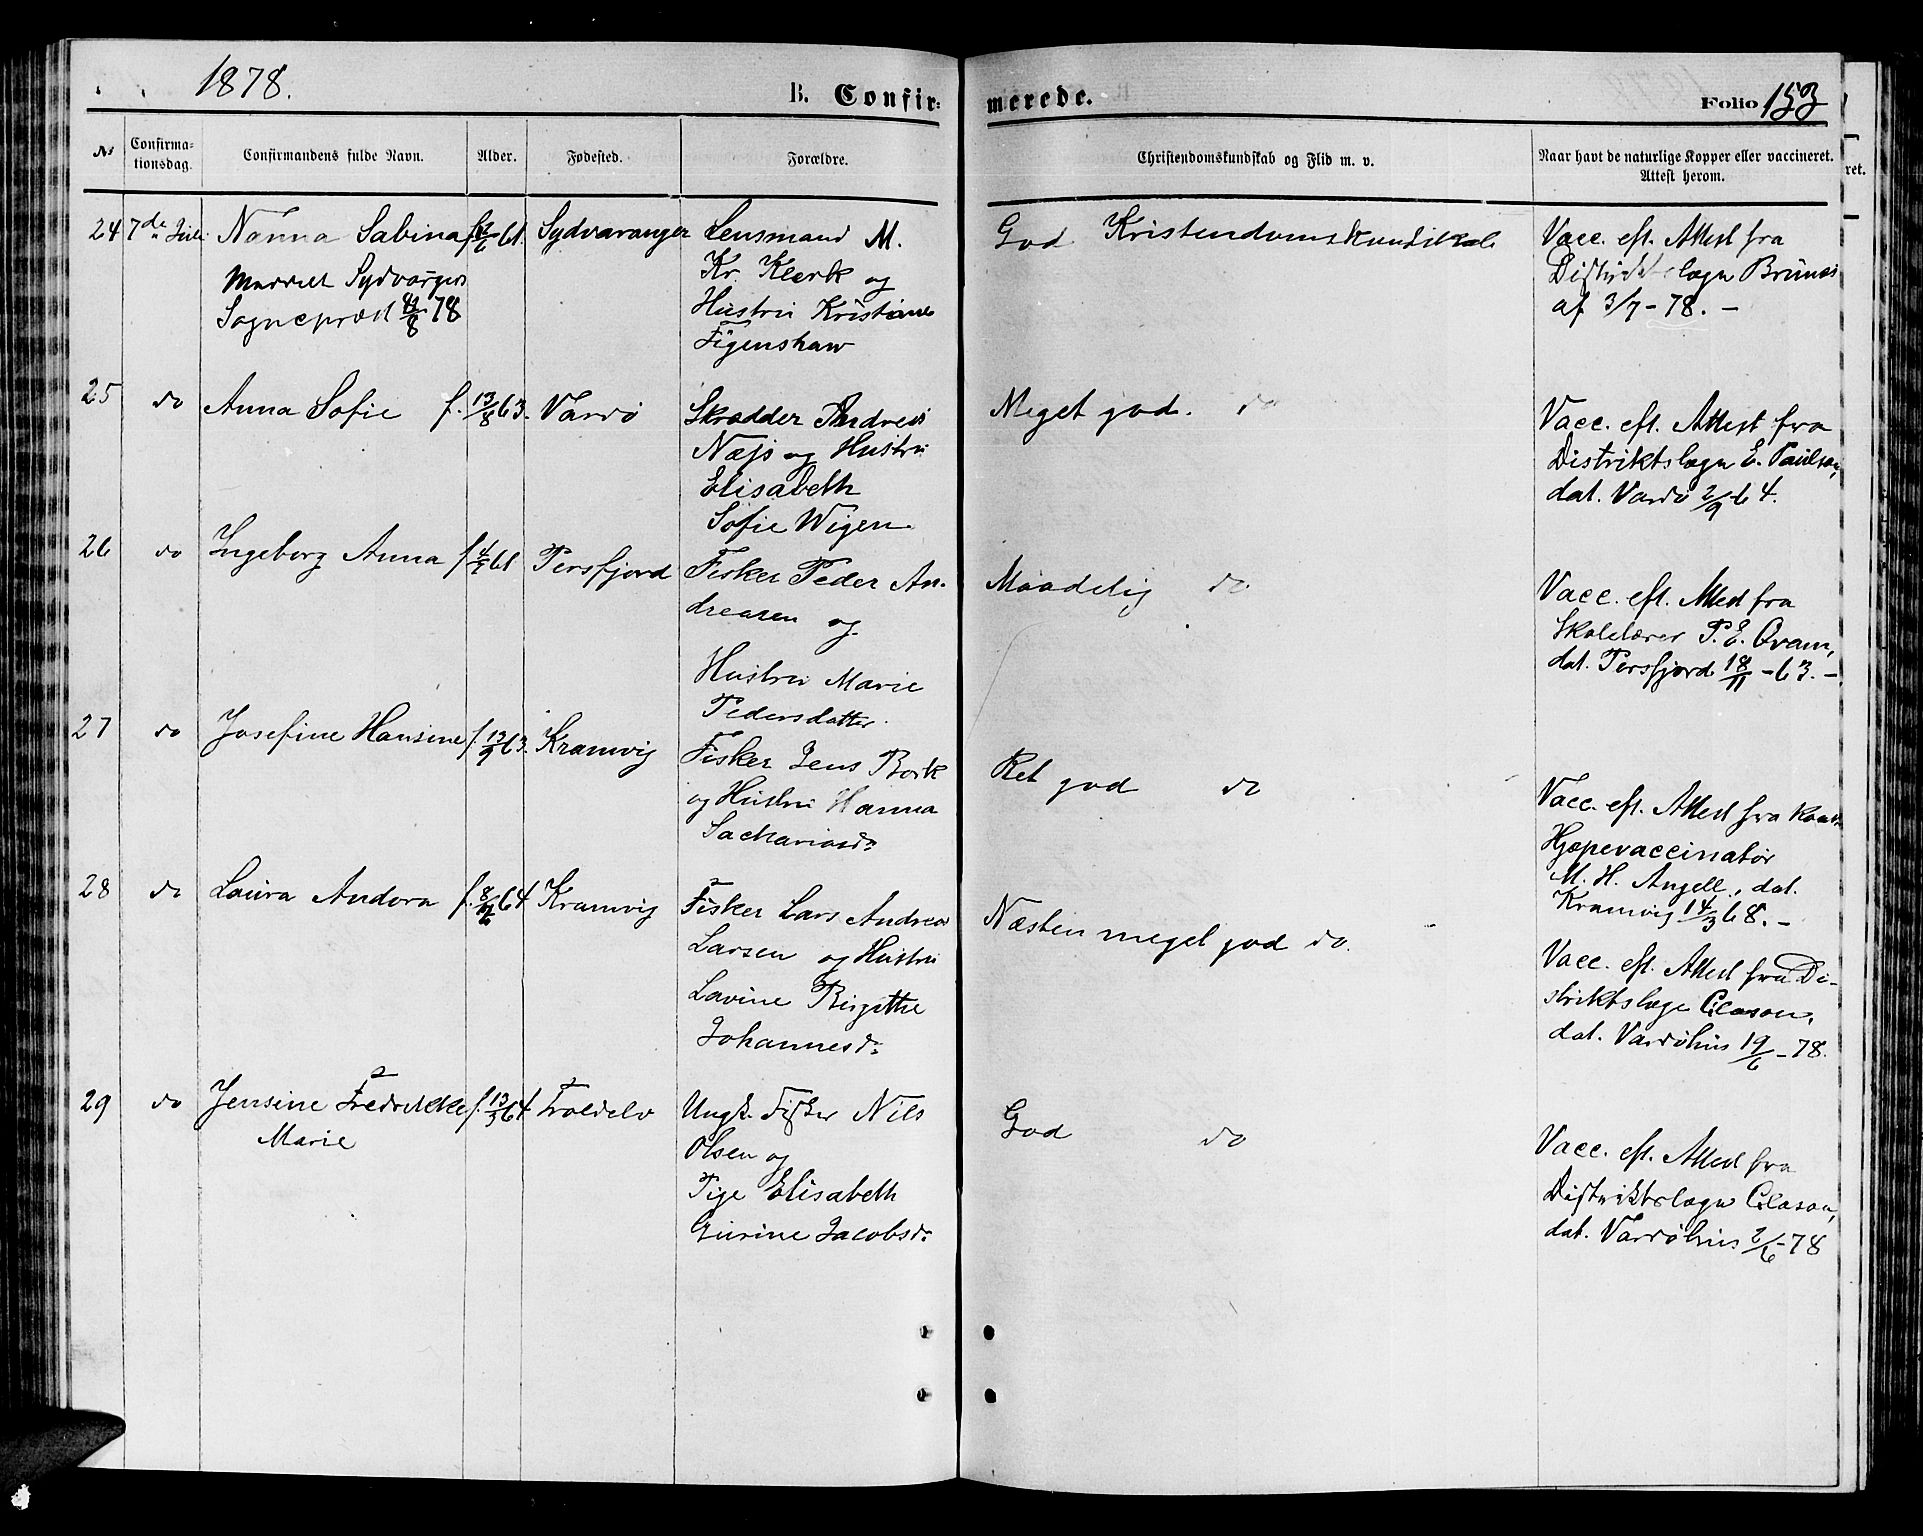 1878.
B. Confir-
merede.
Folio 153
No
Confirma-
tionsdag.
Confirmandens fulde Navn.
Alder.
Fødested.
Forældre.
Christendomskundskab og Flid m. v.
Naar havt de naturlige Kopper eller vaccineret.
Attest herom.
ret.
24 7de Juli Nanna Sabina f. 61. Sydvaranger Lensmand M.
Kr. Klerk og
Hustru Kristiane
Figenshaw
Sydvarger
Sognepræst 78
God Kristendomskundskab
Vacc. eft. Attest fra
Distriktslægn
af 3/7 - 78. -
25 do Anna Sofie f. 13/8 63. Vardø Skrædder Andreas
Næjs og Hustru
Elisabeth
Sofie Wigen
Meget god. do
Vacc. eft. Attest fra
Distriktslægn E. Paulson,
dat. Vardø 2/9 64.
26 do Ingeborg Anna f. 61 Persfjord Fisker Peder An-
dreasen og
Hustru Marie
Pedersdatter.
Maadelig do
Vacc. eft. Attest fra
Skolelærer P. E. Qvam,
dat. Persfjord 18/11 - 63. -
27 do Josefine Hansine f. 13/9 63. Kramvig Fisker Jens Bork
og Hustru Hanna
Sachariasdr
Ret god do
Vacc. eft. Attest fra
Hjæpevaccinatør
M. H. Angell, dat.
Kramvig 14/3 68. -
28 do Laura Andora f. 64. Kramvig Fisker Lars Andreas
Larsen og Hustru
Lavine Birgitte
Johannesdr
Næsten meget god do.
Vacc. eft. Attest fra Di-
striktslæge Clason,
dat. Vardøhus 19/6 - 78.
29 do Jensine Fredrikke f. 13/3 64. Troldelv Ungk. Fisker Nils
Marie
Olsen og
Pige Elisabeth
Gurine Jacobsdr
God do
Vacc. eft. Attest fra
Distriktslægn Clason,
dat. Vardøhus 2/6 - 78